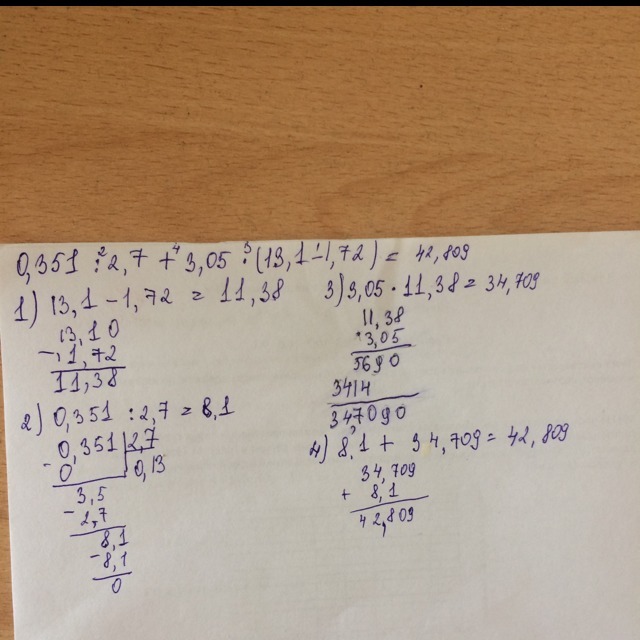 0,351 :² 2,7 +⁴ 3,05 ·³ (13,1 -¹ 1,72) = 42,809
1) 13,1 - 1,72 = 11,38
13,10
- 1,72
11,38
2) 0,351 : 2,7 = 8,1
0,351 | 2,7
- 0 0,13
3,5
- 2,7
8,1
- 8,1
0
3) 3,05 · 11,38 = 34,709
11,38
· 3,05
5690
3414
347090
4) 8,1 + 34,709 = 42,809
34,709
+ 8,1
42,809